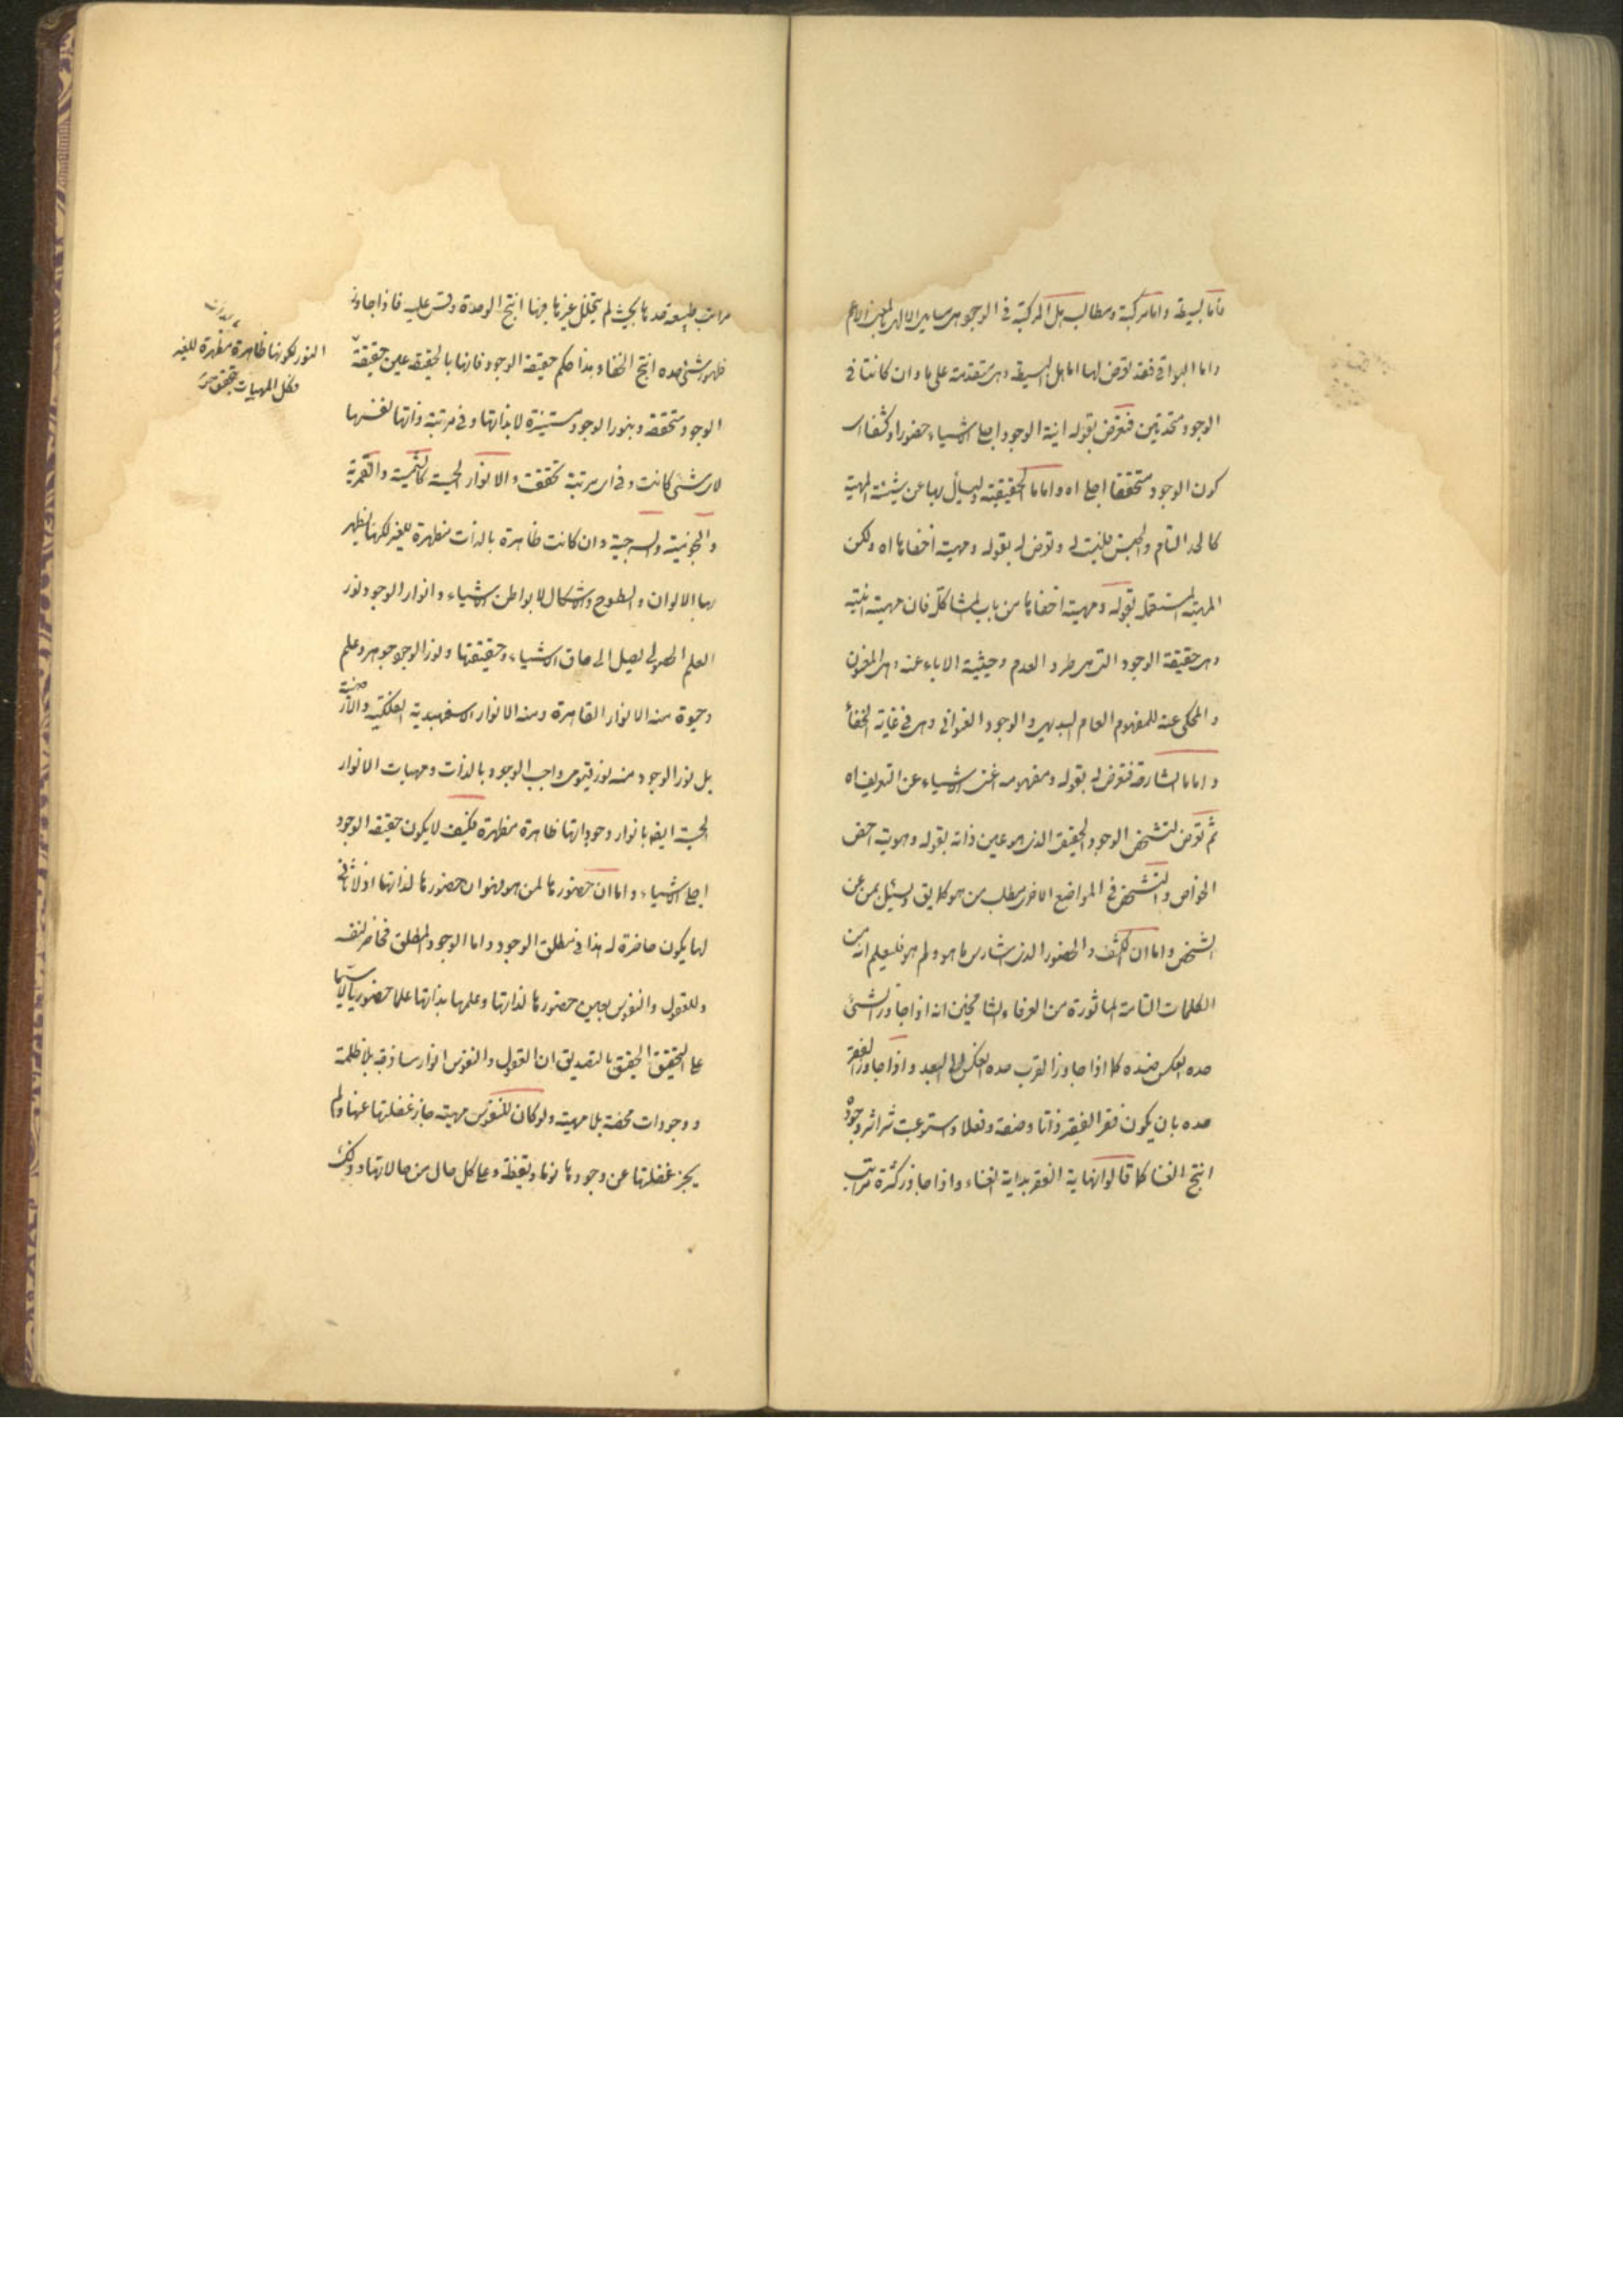 فاما بسيطة واما مركبة ومطالب هل المركبة في الوجود هي مسايل الالهي بالمعنى الاعم
واما البواقي فقد تعرض لها اما هل البسيطة وهي متقدمة على ما وان كانتا في
الوجود متحدتين فتعرض بقوله انية الوجود اجلى الاشياء حضورا وكشفا اى
كون الوجود متحققا اجلى اه واما ما الحقيقية وليسأل بها عن شيئية المهية
كالحد التام والجنس فليست له وتعرض له بقوله ومهيته اخفاها اه ولكن
المهية المستعمل بقوله ومهيته اخفاها من باب المشاكلة فان مهيته انيته
وهي حقيقة الوجود التي هي طرد العدم وحيثية الاباء عنه وهي المعنون
والمحكى عنه للمفهوم العام البديهي والوجود العنوانى وهي في غاية الخفاء
واما ما الشارحة فتعرض له بقوله ومفهومه اغنى الاشياء عن التعريف اه
ثم تعرض لتشخص الوجود الحقيقى الذى هو عين ذاته بقوله وهويته اخص
الخواص والتشخص في المواضع الاخر مطلب من هو كما يق ويسئل بمن عن
الشخص واما ان الكشف والحضور الذى اشار الى ما هو ولم هو فليعلم انه من
الكلمات التامة الماثورة من العرفاء الشامخين انه اذا جاوز الشئ
حده انعكس ضده كما اذا جاوز القرب حده انعكس الى البعد واذا جاوز الفقر
حده بان يكون فقر الفقير ذاتا وصفة وفعلا واستوعبت شراشر وجوده
انتج الغنا كما قالوا نهاية الفقر بداية الغناء واذا جاوز كثرة مراتب
مراتب طبيعة حدها بحيث لم يتخلل غيرها فيها انتج الوحدة وقس عليه فاذا جاوز
ظهور شئ حده انتج الخفاء وهذا حكم حقيقة الوجود فانها بالحقيقة عين حقيقة
الوجود متحققة وبنور الوجود مستنيرة لا بذاتها وفي مرتبة ذاتها لنفسها
لاى شئ كانت وفي اى مرتبة تحققت والانوار الحسية كالشمسية والقمرية
والنجومية والسرجية وان كانت ظاهرة بالذات مظهرة للغير لكنها يظهر
بها الالوان والسطوح والاشكال لا بواطن الاشياء وانوار الوجود نور
العلم الحصولى يصل الى حاق الاشياء وحقيقتها ونور الوجود جوهر وعلم
وحيوة منه الانوار القاهرة ومنه الانوار الاسفهبدية الفلكية والارضية
بل نور الوجود منه نور قيومى واجب الوجود بالذات ومهيات الانوار
الحسية ايضا بانوار وجوداتها ظاهرة مظهرة فكيف لا يكون حقيقة الوجود
اجلى الاشياء واما ان حضورها لمن هو فهو ان حضورها لذاتها اذ لا ثانى
لها يكون حاضرة له هذا في مطلق الوجود واما الوجود المطلق فحاضر لنفسه
وللعقول والنفوس بعين حضورها لذاتها وعلمها بذاتها علما حضوريا لاسيما
على التحقيق الحقيق بالتصديق ان العقول والنفوس انوار ساذجة بلا ظلمة
ووجودات محضة بلا مهية ولو كان للنفوس مهية جاز غفلتها عنها ولم
يجز غفلتها عن وجودها نوما ويقظة وعلى كل حال من حالاتها
النور لكونها ظاهرة مظهرة للغير
فكل المهيات بتحقق